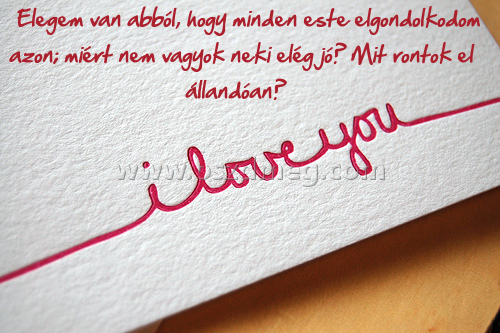 Elegem van abból, hogy minden este elgondolkodom
azon; miért nem vagyok neki elég jó? Mit rontok el
állandóan?
i love you